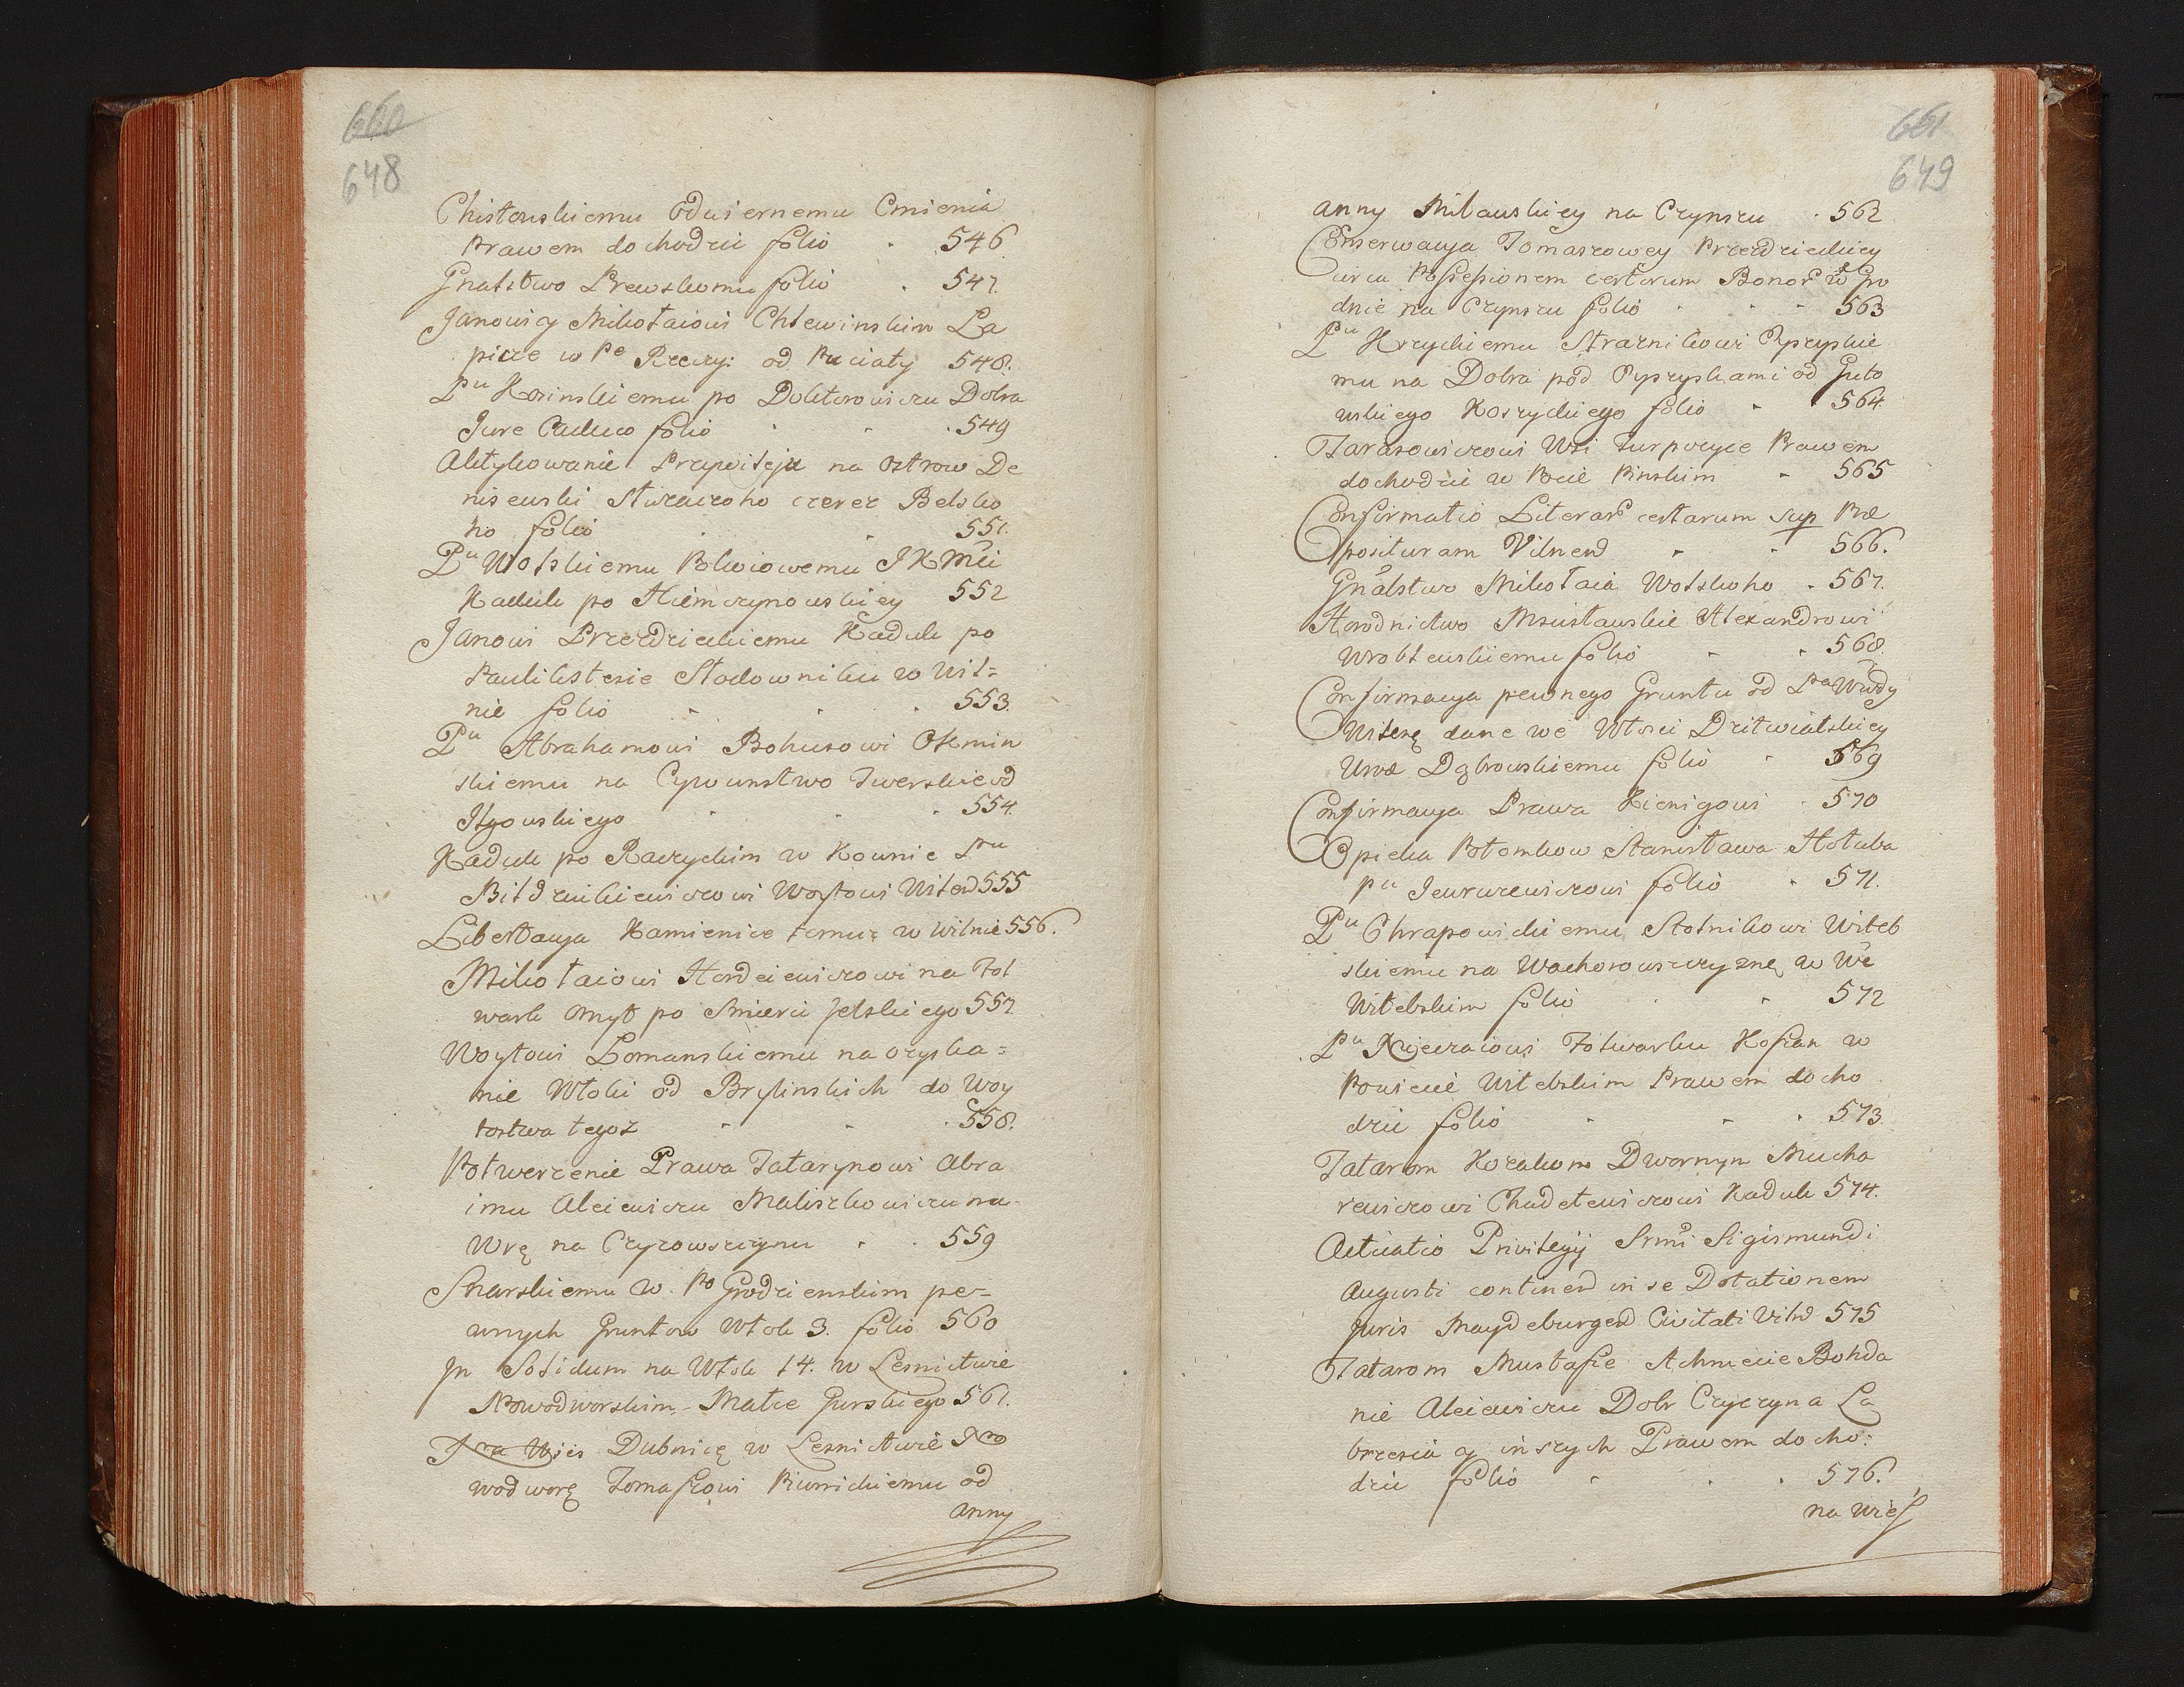 660
648
Chistowskiemu odwiernemu Cmienia
Prawem dochodzic folio 546
Gnalstwo Prewskomu folio 547.
Janowi y Mikołaiowi Chlewinskim La
picze w Pe Rzeczy: od Puciaty 548.
Pu Kosinskiemu po Doktorowiczu Dobra
Jure Caduco folio 549
Aktykowanie Przywileju na Ostrow De
nisewski
ho folio 551.
Pu Wolskiemu Pokoiowemu JKMci
Kaduk po Niemczynowskiey 552
Janowi Przezdzieckiemu Kaduk po
Stadowniku w Wil=
nie folio 553.
Pu Abrahamowi Bohusowi Okmin
skiemu na Cywunstwo Twerskie od
Ilgowskiego 554.
Kaduk po Raczyckim w Kownie Pnu
Bildziukiewiczowi Woytowi Wilen 555
Libertacya Kamienice temuz w Wilnie 556.
Mikołaiowi Hordziewiczowi na Fol
wark Omyt po Smierci Jelskiego 557
Woytowi Łomanskiemu na ozyska=
nie Włoki od Brylinskich do Woy
tostwa tegoz 558.
Potwerzenie Prawa Tatarynowi Abra
imu Aleiewiczu Maliszkowiczu na
Wrę na Czyzowszczynu 559
Skarskiemu w Po Grodzienskim pe=
wnych Gruntow Włok 3. folio 560
In Solidum na Włok 14. w Lesnictwie
Nowodworskim Matce Gurskiego 561.
Na Wies Dubnicę w Lesnictwie No
wodworę Tomaszowi Kiwnickiemu od
Anny
661
649
Anny Milawskiey na Czynszu 562
Conserwacya Tomaszowey Przezdzieckiey
circa Possessionem certorum Bonor w Gro
dnie na Czynszu folio 563
Pu Krzyckiemu Straznikowi Pyryskie
mu na Dobra pod Pyzryskami od Guto
wskiego Koszyckiego folio 564
Tarasowiczowi Wsi Turpczyce Prawem
dochodzic w Pcie Pinskim 565
Confirmatio Literar certarum sup Præ
posituram Vilnen 566.
Gnalstwo Mikołaia Wolskoho 567.
Horodnictwo Mscisławskie Alexandrowi
Wroblewskiemu folio 568.
Confirmacya pewnego Gruntu od Pna Wwdy
Wilenę dane we Włosci Dzitwiatskiey
Urod Dąbrowskiemu folio 569
Confirmacya Prawa Kienigowi 570
Opieka Potomkow Stanisława Hołuba
pu Jewruiewiczowi folio 571.
Pu Chrapowickiemu Stolnikowi Witeb
skiemu na Wachorowszczyznę w We
Witebskim folio 572
Pu Xiężcaiowi Folwarku Kossan w
Powiecie Witebskim Prawem docho
dzic folio 573.
Tatarom Kozakom Dwornym Mucha
rewiczowi Chudelewiczowi Kaduk 574.
Acticatio Privilegij Srmi Sigismundi
Augusti continen in se Dotationem
Juris Maydeburgen Civitati Viln 575
Tatarom Mustafie Achmecie Bohda
nie Aleiewiczu Dobr Czyczyna La
brzesia y inszych Prawem docho:
dzic folio 576.
na wies